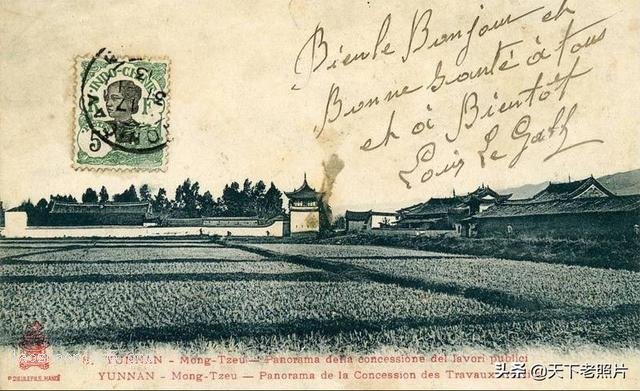 Bien le Bonjour et
Bonne Santé à tous
et à Bientôt
INDO-CHINE
5
YUNNAN - Mong-Tzeu - Panorama della concessione dei lavori publici
YUNNAN - Mong-Tzeu - Panorama de la Concession des Travaux
P. DIEULEFILS, HANOI
头条 @天下老照片